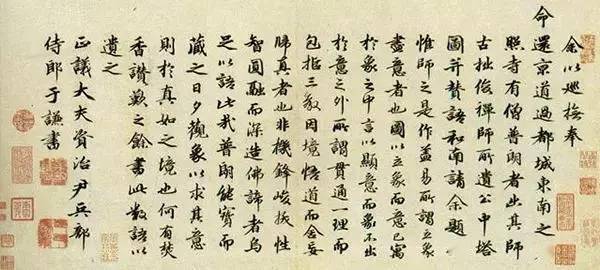 余以巡撫奉
命還京道過都城東南之
照寺有僧普朗者出其師
古拙俊禪師所遺公中塔
圖并贊語和南請余題
惟師之是作蓋易所謂立象
盡意者也圖以立象而意已寓
於象之中言以顯意而象不出
於意之外所謂貫通一理而
包括三教因境悟道而舍妄
歸真者也非機鋒峻拔性
智圓融而深造佛諦者烏
足以語此哉普朗能寶而
藏之日夕觀象以求其意
則於真如之境也何有焚
香讚歎之餘書此數語以
遺之
正議大夫資治尹兵部
侍郎于謙書